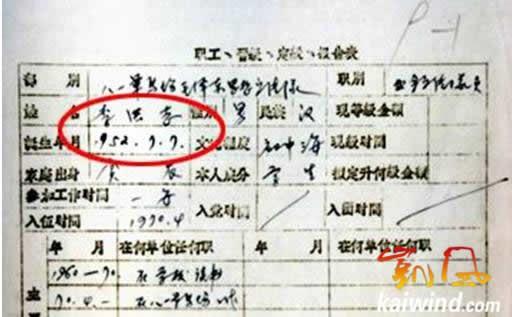 P-1
职工、晋级、定级
部别 八一军马场毛泽东思想宣传队 职别
姓名 李洪志 性别 男 民族 汉 现等级金额
诞生年月 1952.7.7. 文化程度 初中 现级时间
家庭出身 贫农 本人成分 学生 拟定升何级金额
参加工作时间
入伍时间 1970.4 入党时间 入团时间
年 月 在何单位任何职 年 月 在何单位任何职
1960—70. 在学校读书
主 70.4— 在八一军马场
凯风
kaiwind.com